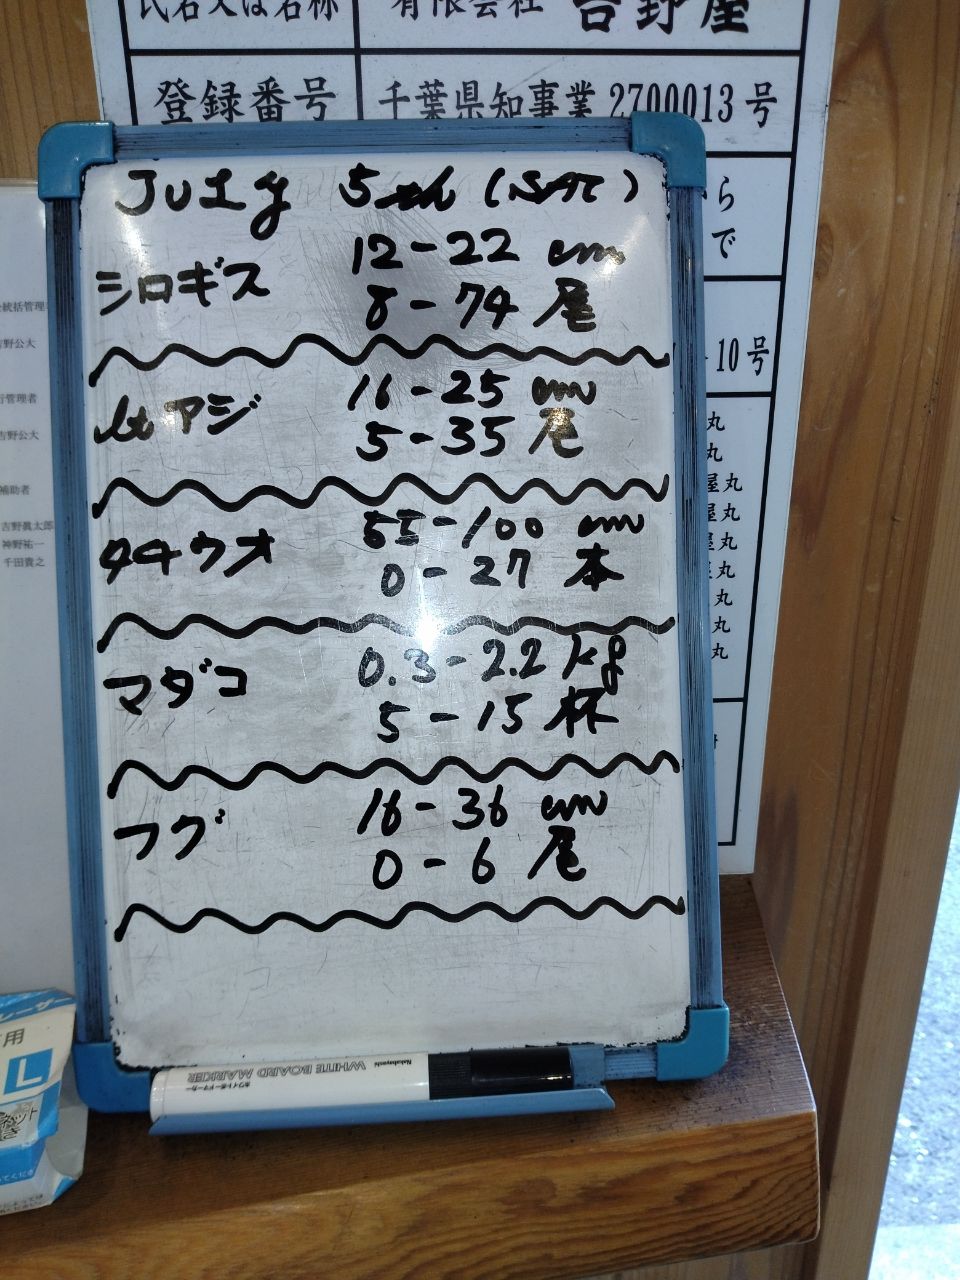 氏名又は名称 有限会社 吉野屋
登録番号 千葉県知事業2700013号
ら
で
10号
丸
丸
屋丸
屋丸
屋丸
丸
丸
丸
丸
統括管理
吉野公大
行管理者
吉野公大
補助者
吉野眞太郎
神野祐一
千田貴之
July 5th (SAT)
シロギス 12-22 cm
8-74 尾
LTアジ 16-25 cm
5-35 尾
タチウオ 55-100 cm
0-27 本
マダコ 0.3-2.2 kg
5-15 杯
フグ 16-36 cm
0-6 尾
Nakabayashi
WHITE BOARD MARKER
ホワイトボードマーカー
レーザー
用
L